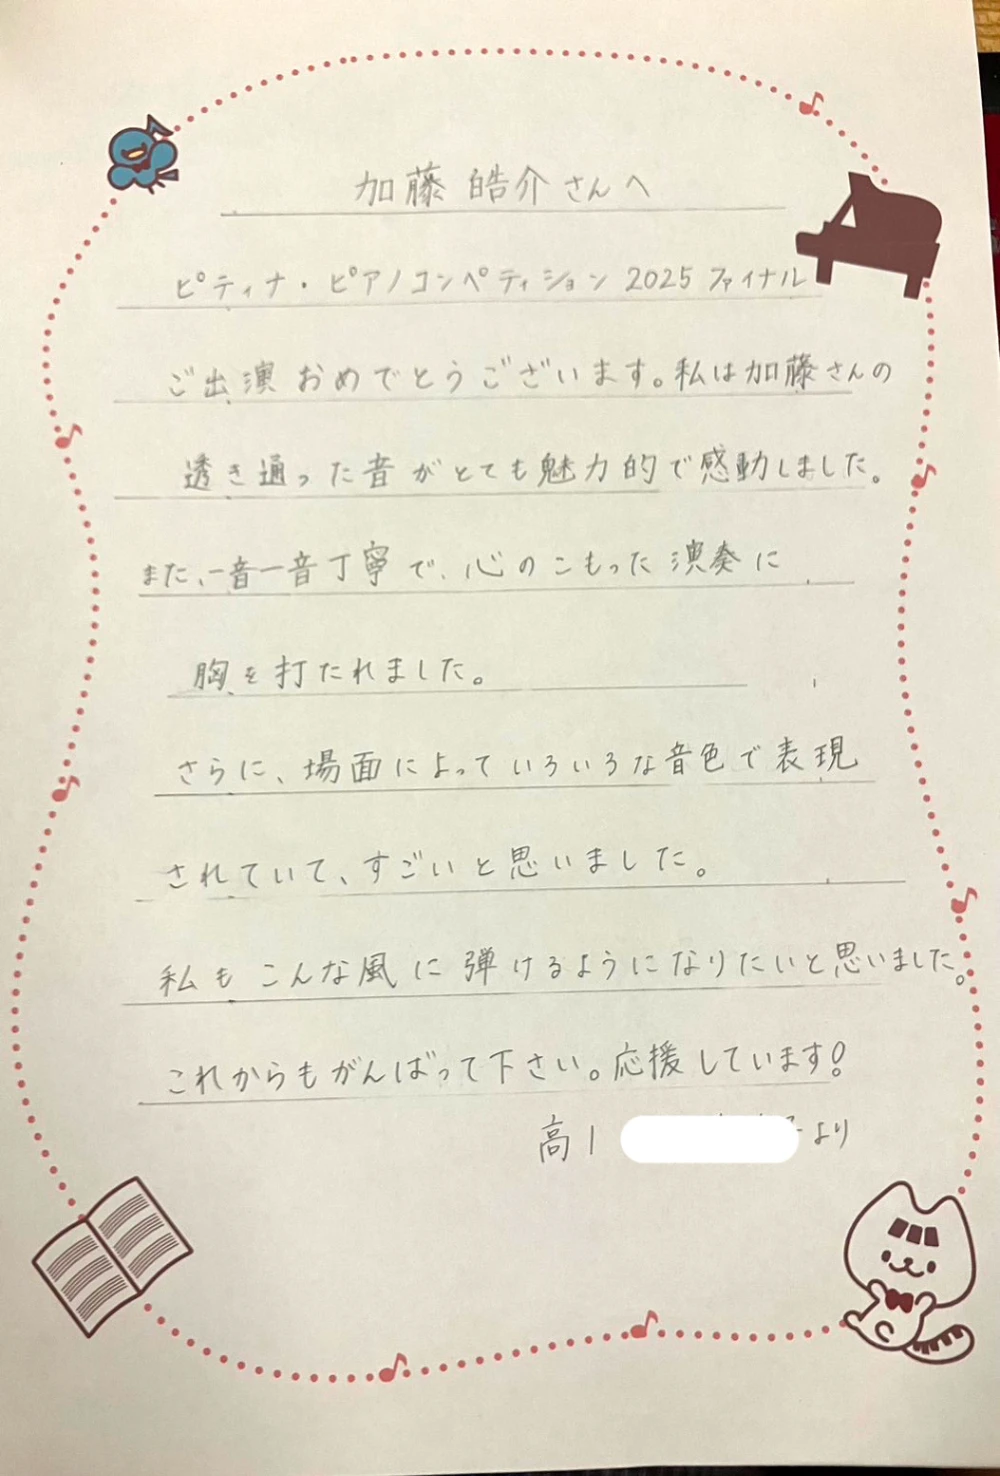 加藤 皓介さんへ
ピティナ・ピアノコンペティション 2025 ファイナル
ご出演おめでとうございます。私は加藤さんの
透き通った音がとても魅力的で感動しました。
また、一音一音丁寧で、心のこもった演奏に
胸を打たれました。
さらに、場面によっていろいろな音色で表現
されていて、すごいと思いました。
私もこんな風に弾けるようになりたいと思いました。
これからもがんばって下さい。応援しています!
高1 より